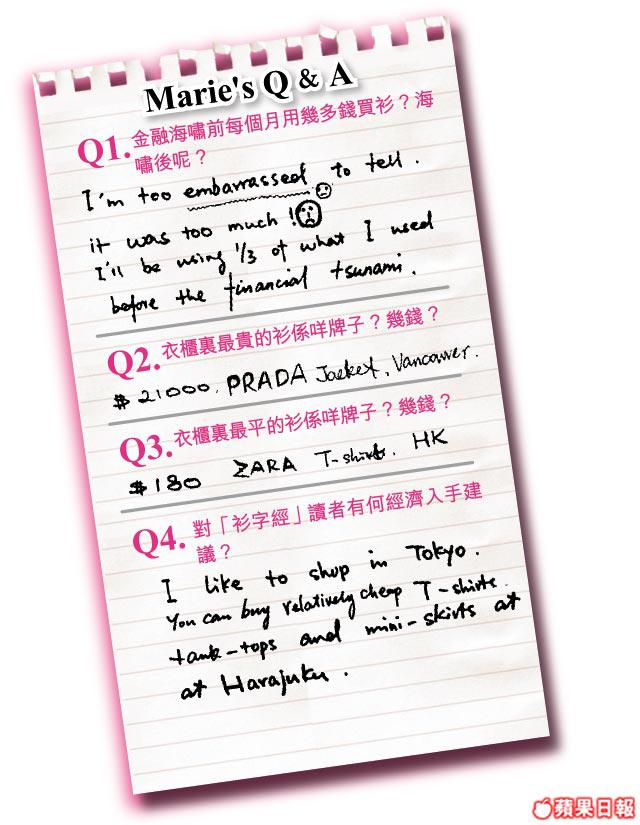 Marie's Q & A
Q1. 金融海嘯前每個月用幾多錢買衫？海
嘯後呢？
I'm too embarrassed to tell.
it was too much!
I'll be using 1/3 of what I used
before the financial tsunami.
Q2. 衣櫃裏最貴的衫係咩牌子？幾錢？
$21000. PRADA Jacket, Vancouver.
Q3. 衣櫃裏最平的衫係咩牌子？幾錢？
$180 ZARA T-shirts. HK
Q4. 對「衫字經」讀者有何經濟入手建
議？
I like to shop in Tokyo.
You can buy relatively cheap T-shirts.
tank-tops and mini-skirts at
at Harajuku.
蘋果日報